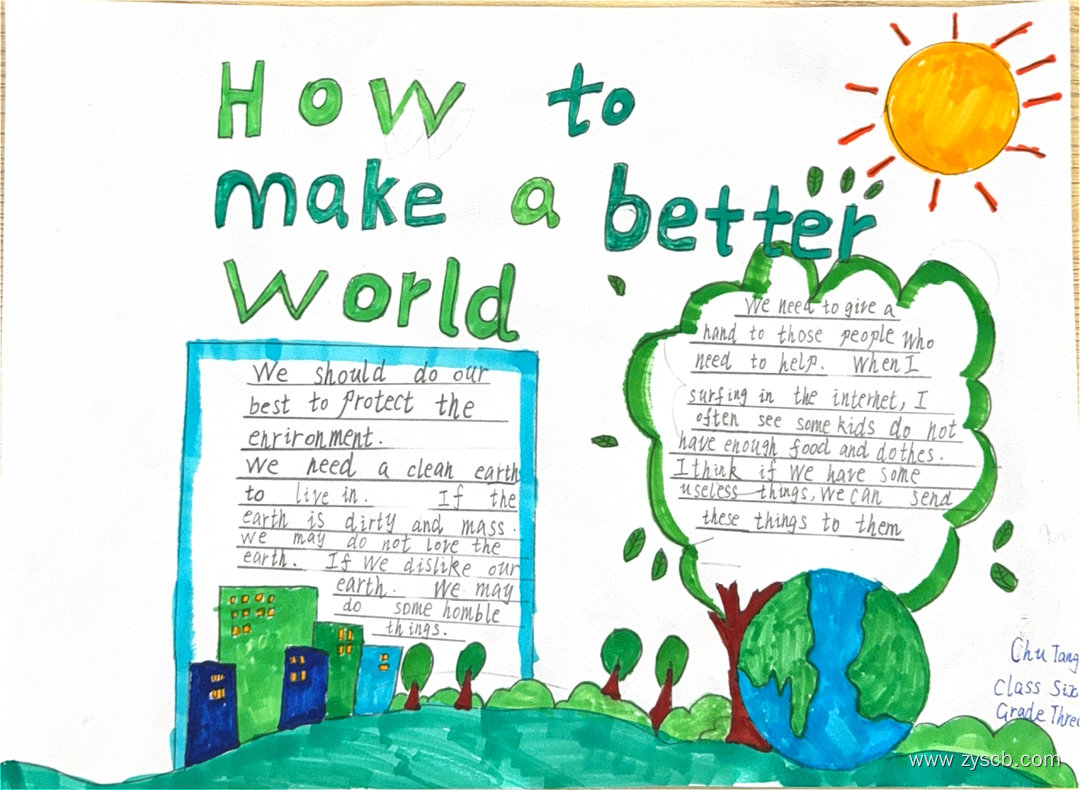 How to
make a better
World
We should do our
best to protect the
enrironment.
We need a clean earth
to live in. If the
earth is dirty and mass.
We may do not love the
earth. If We dislike our
earth. We may
do some homble
things.
We need to give a
hand to those people who
need to help. When I
surfing in the internet, I
often see some kids do not
have enough food and dothes.
I think if We have some
useless things, We can send
these things to them
Chu Tang
Class Six
Grade Three
www.zyscb.com